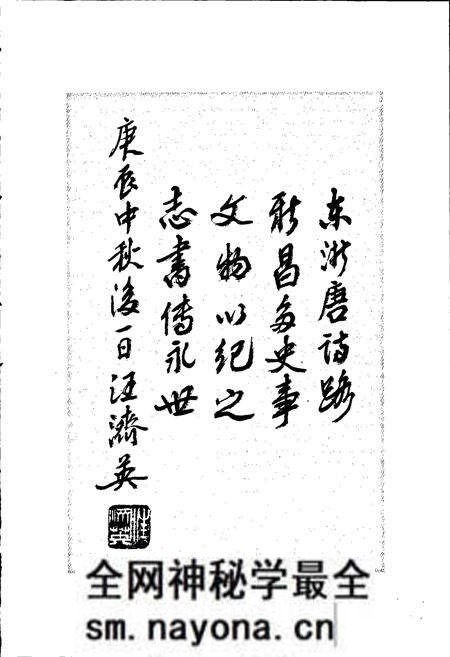 东浙唐诗路
新昌多史事
文物以纪之
志書傳永世
庚辰中秋後一日汪濟英
汪濟英
全网神秘学最全
sm.nayona.cn